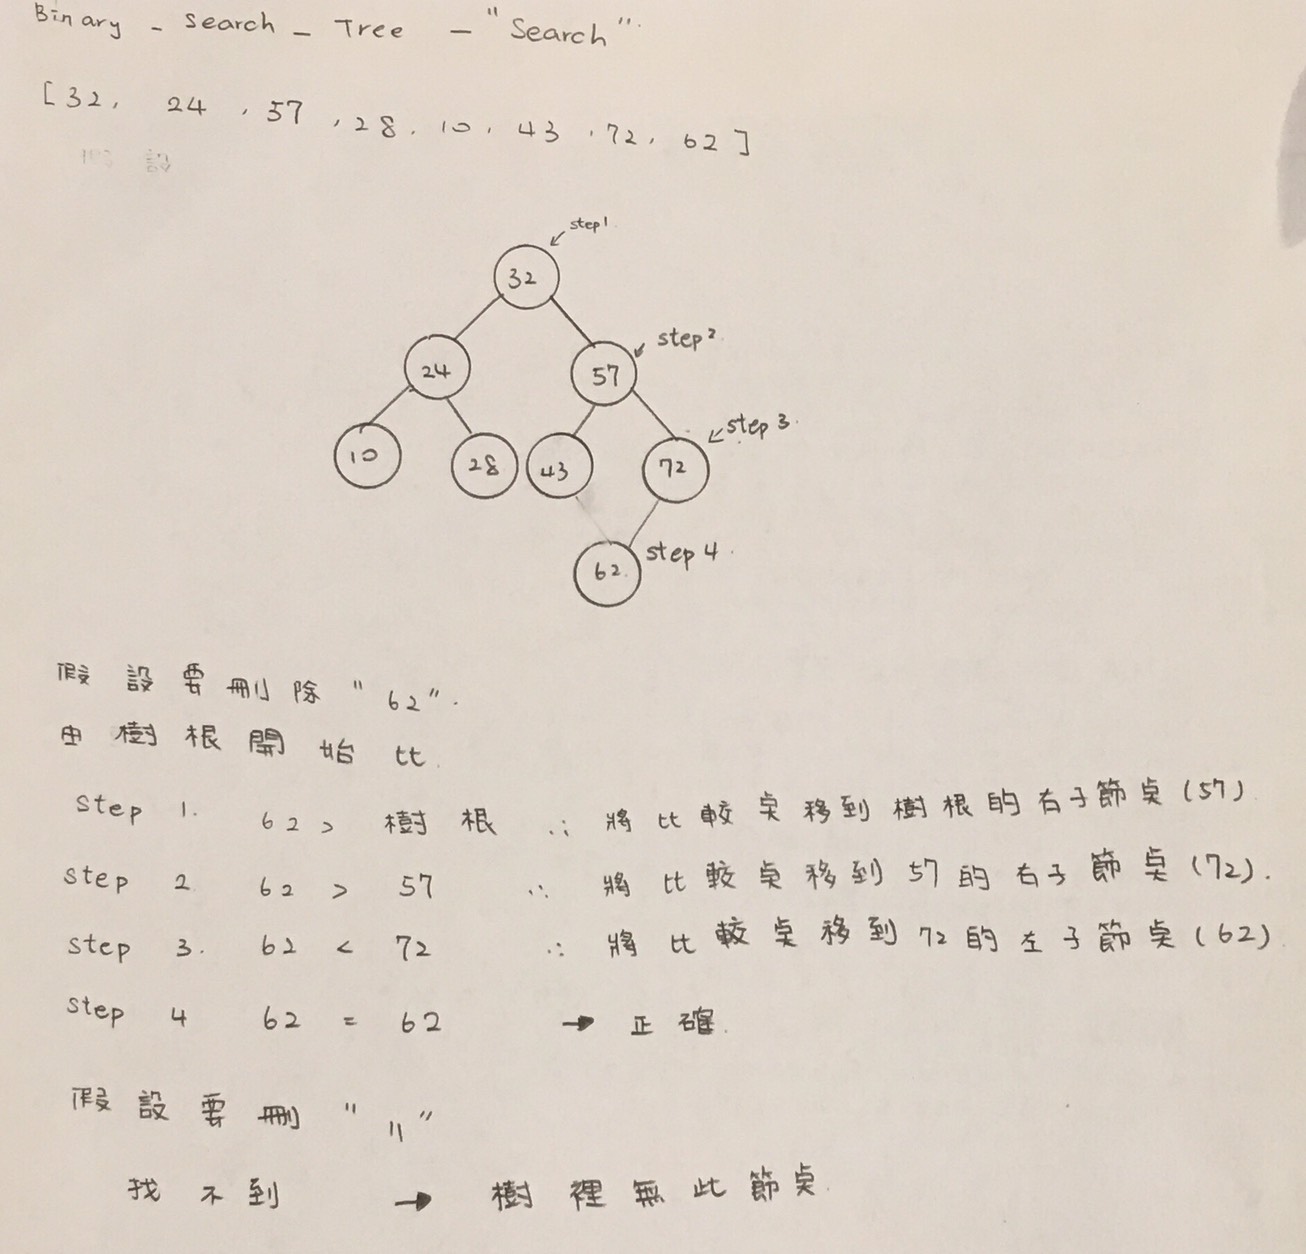 Binary - Search - Tree - "Search"
[32, 24, 57, 28, 10, 43, 72, 62]
假設
step1
32
step2
24
57
step3
10
28
43
72
step4
62
假設要刪除"62".
由樹根開始比.
Step 1. 62 > 樹根 ∴ 將比較點移到樹根的右子節點(57)
Step 2. 62 > 57 ∴ 將比較點移到57的右子節點(72).
Step 3. 62 < 72 ∴ 將比較點移到72的左子節點(62)
Step 4 62 = 62 → 正確.
假設要刪"11"
找不到 → 樹裡無此節點